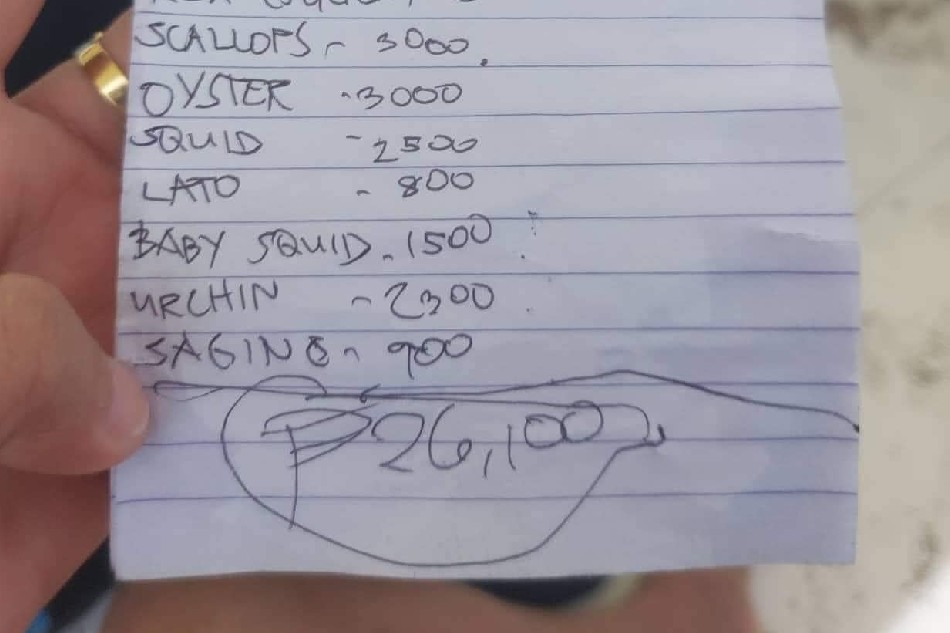 SCALLOPS - 3000.
OYSTER - 3000
SQUID - 2500
LATO - 800
BABY SQUID - 1500
URCHIN - 2300
SAGING - 900
₱26,100